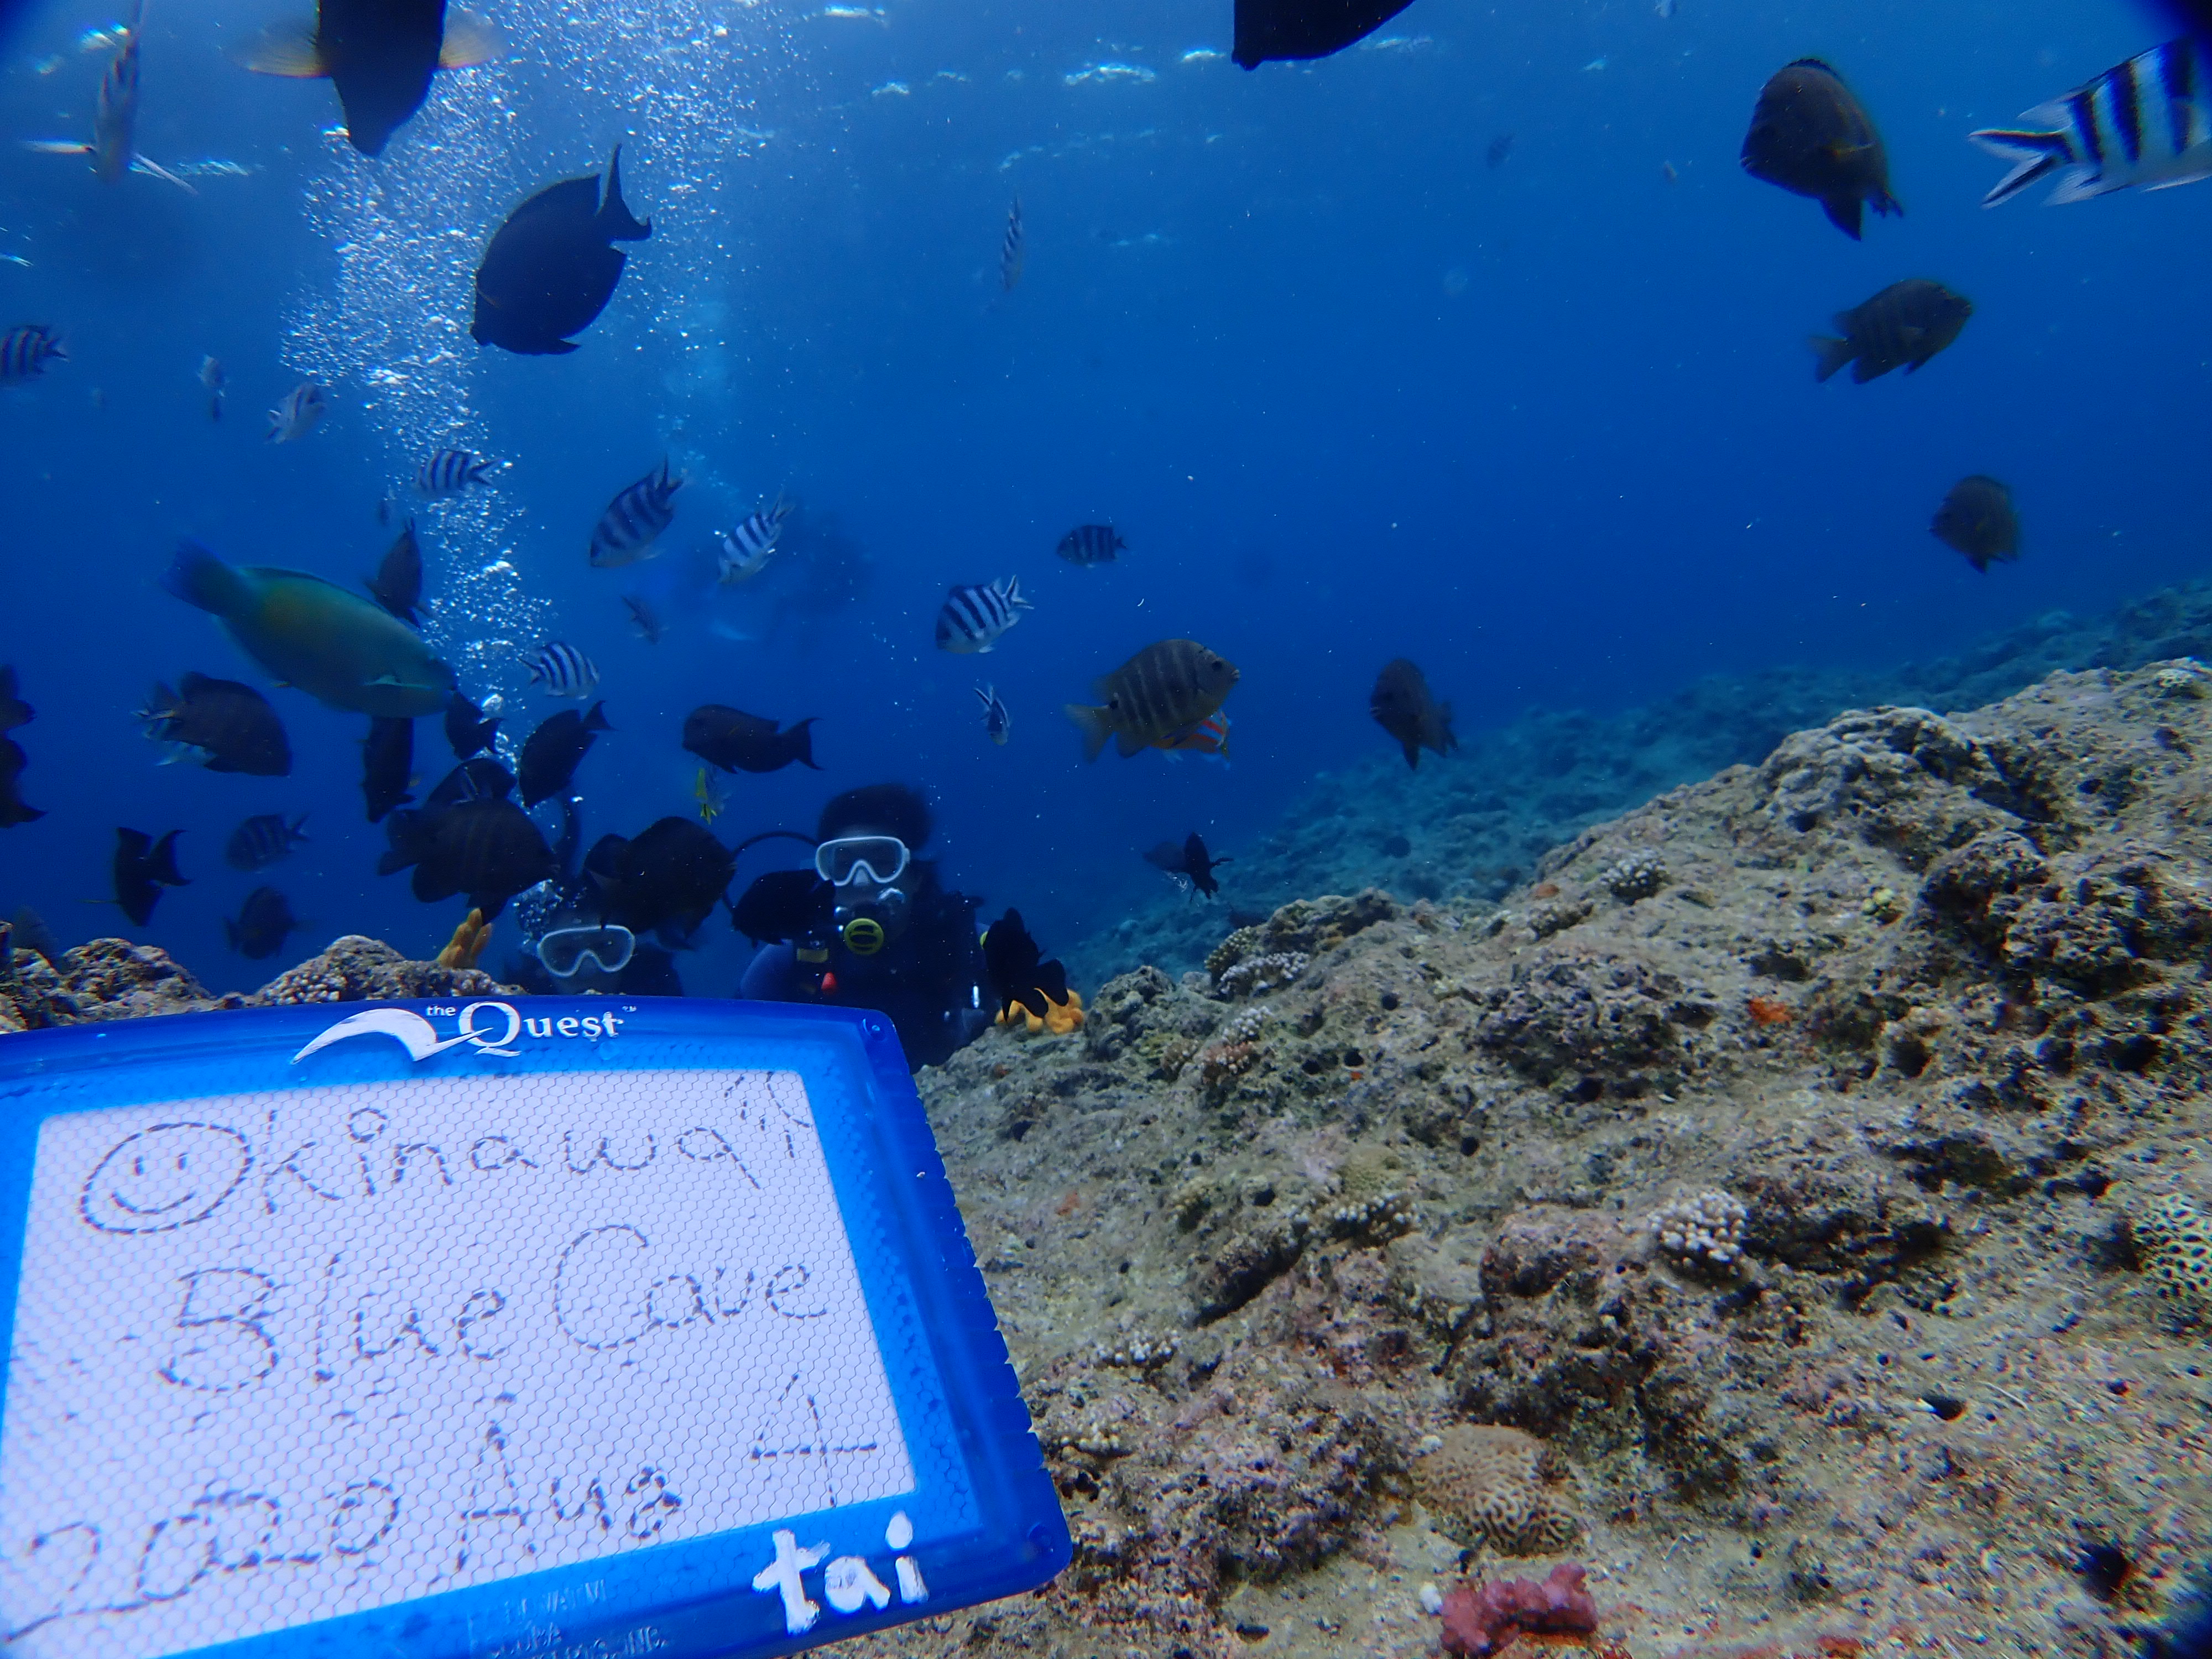 the Quest™
Okinawa
Blue Cave
2020 Aug 4
tai